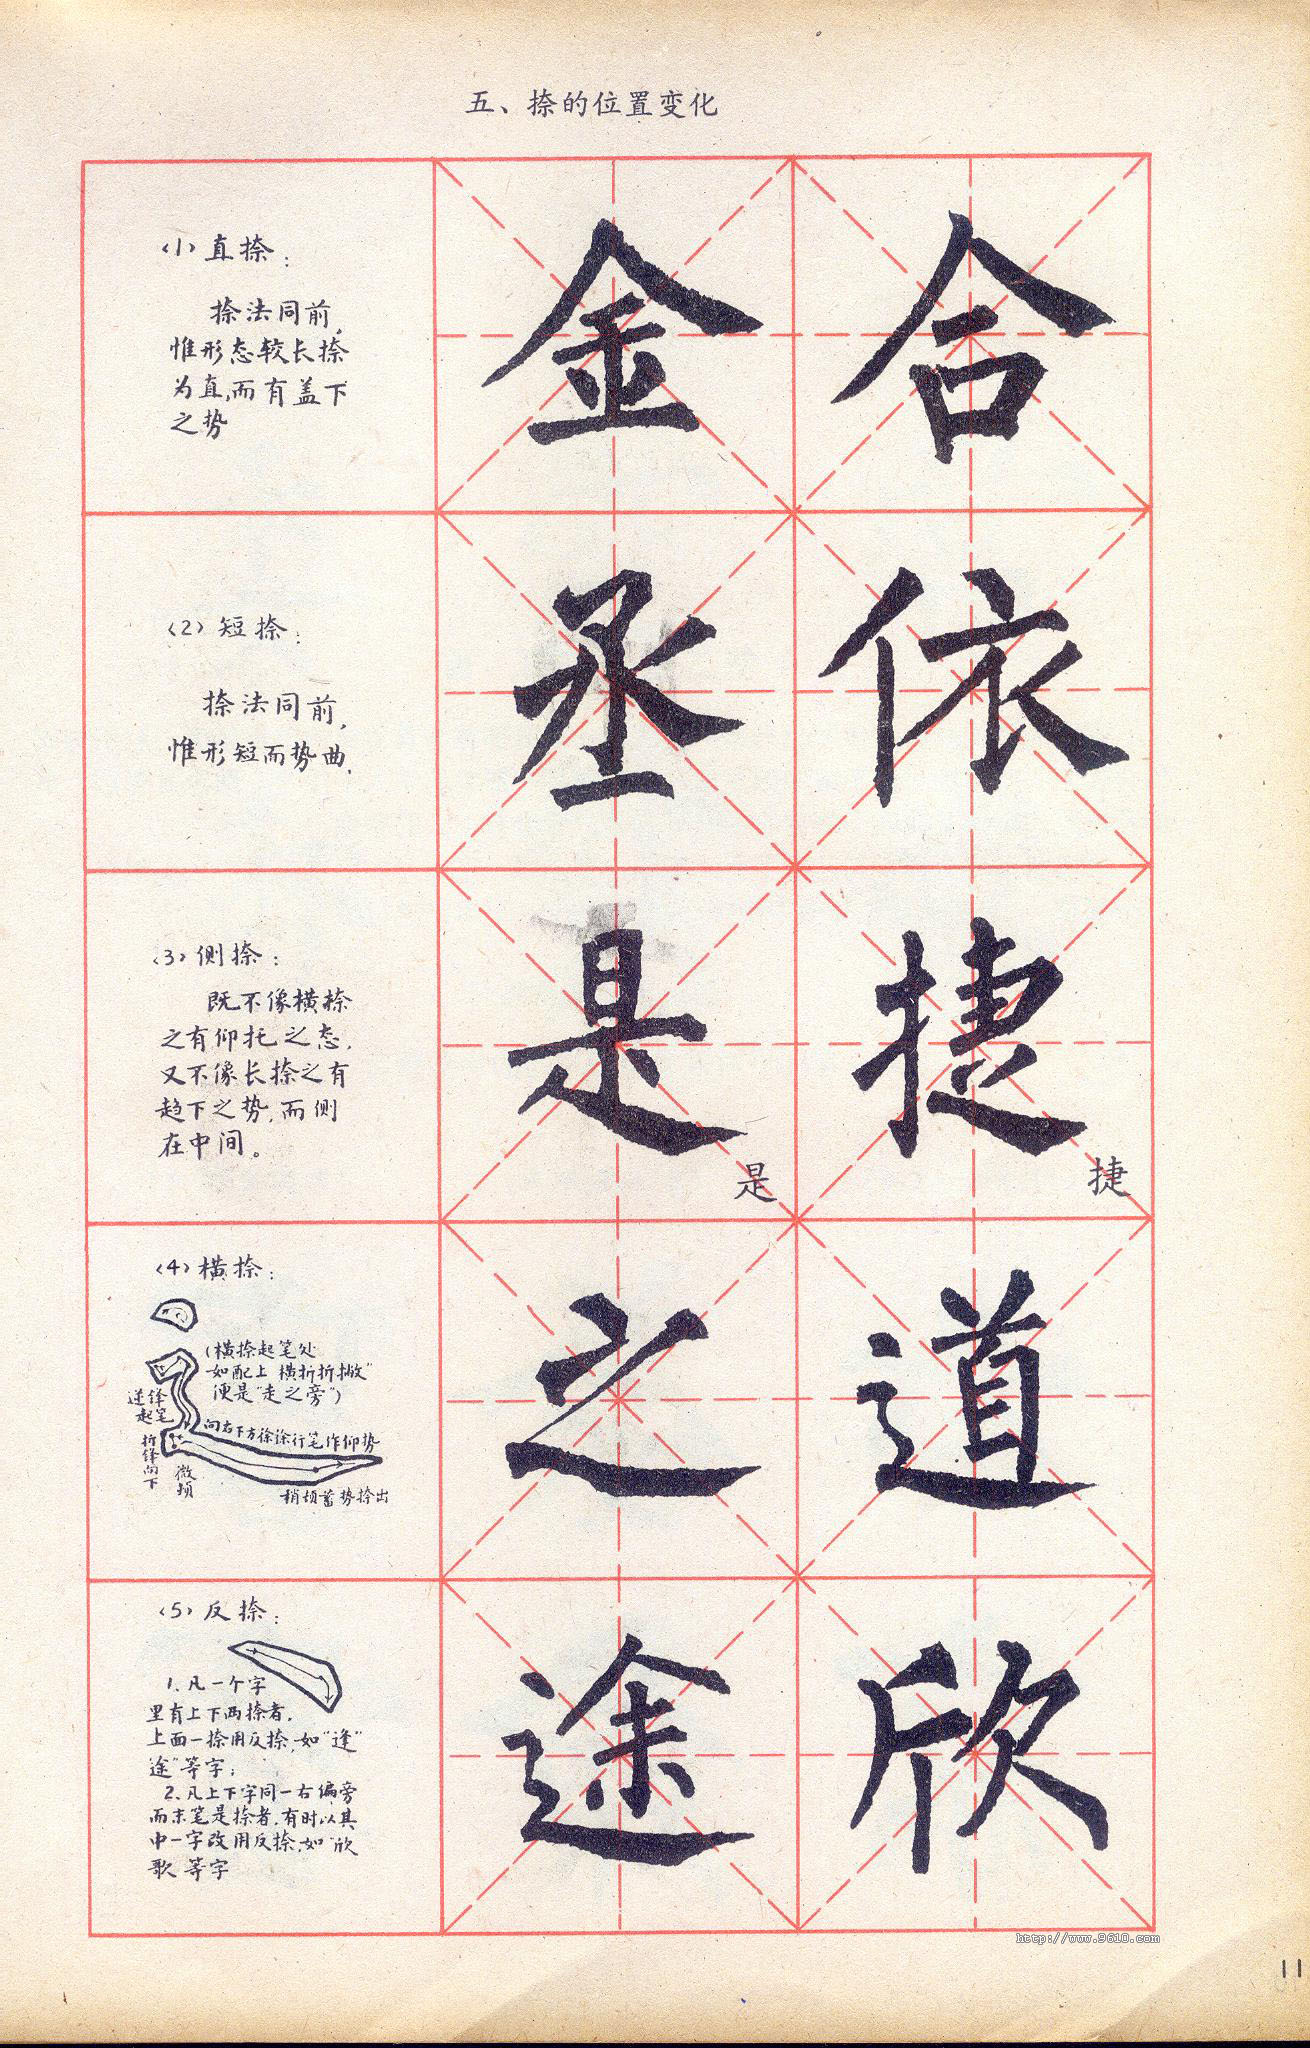 五、捺的位置变化
(1)直捺：
捺法同前，
惟形态较长捺
为直，而有盖下
之势
金
合
(2)短捺：
捺法同前，
惟形短而势曲，
丞
依
(3)侧捺：
既不像横捺
之有仰托之态，
又不像长捺之有
趋下之势，而侧
在中间。
是
是
捷
捷
(4)横捺：
(横捺起笔处
如配上"横折折撇"
便是"走之旁")
逆锋
起笔
折锋向下
微顿
向右下方徐徐行笔作仰势
稍顿蓄势捺出
之
道
(5)反捺：
1.凡一个字
里有上下两捺者，
上面一捺用反捺，如"逢"
途"等字；
2.凡上下字同一右偏旁
而末笔是捺者，有时以其
中一字改用反捺，如"欣
歌"等字
途
欣
http://www.9610.com
11